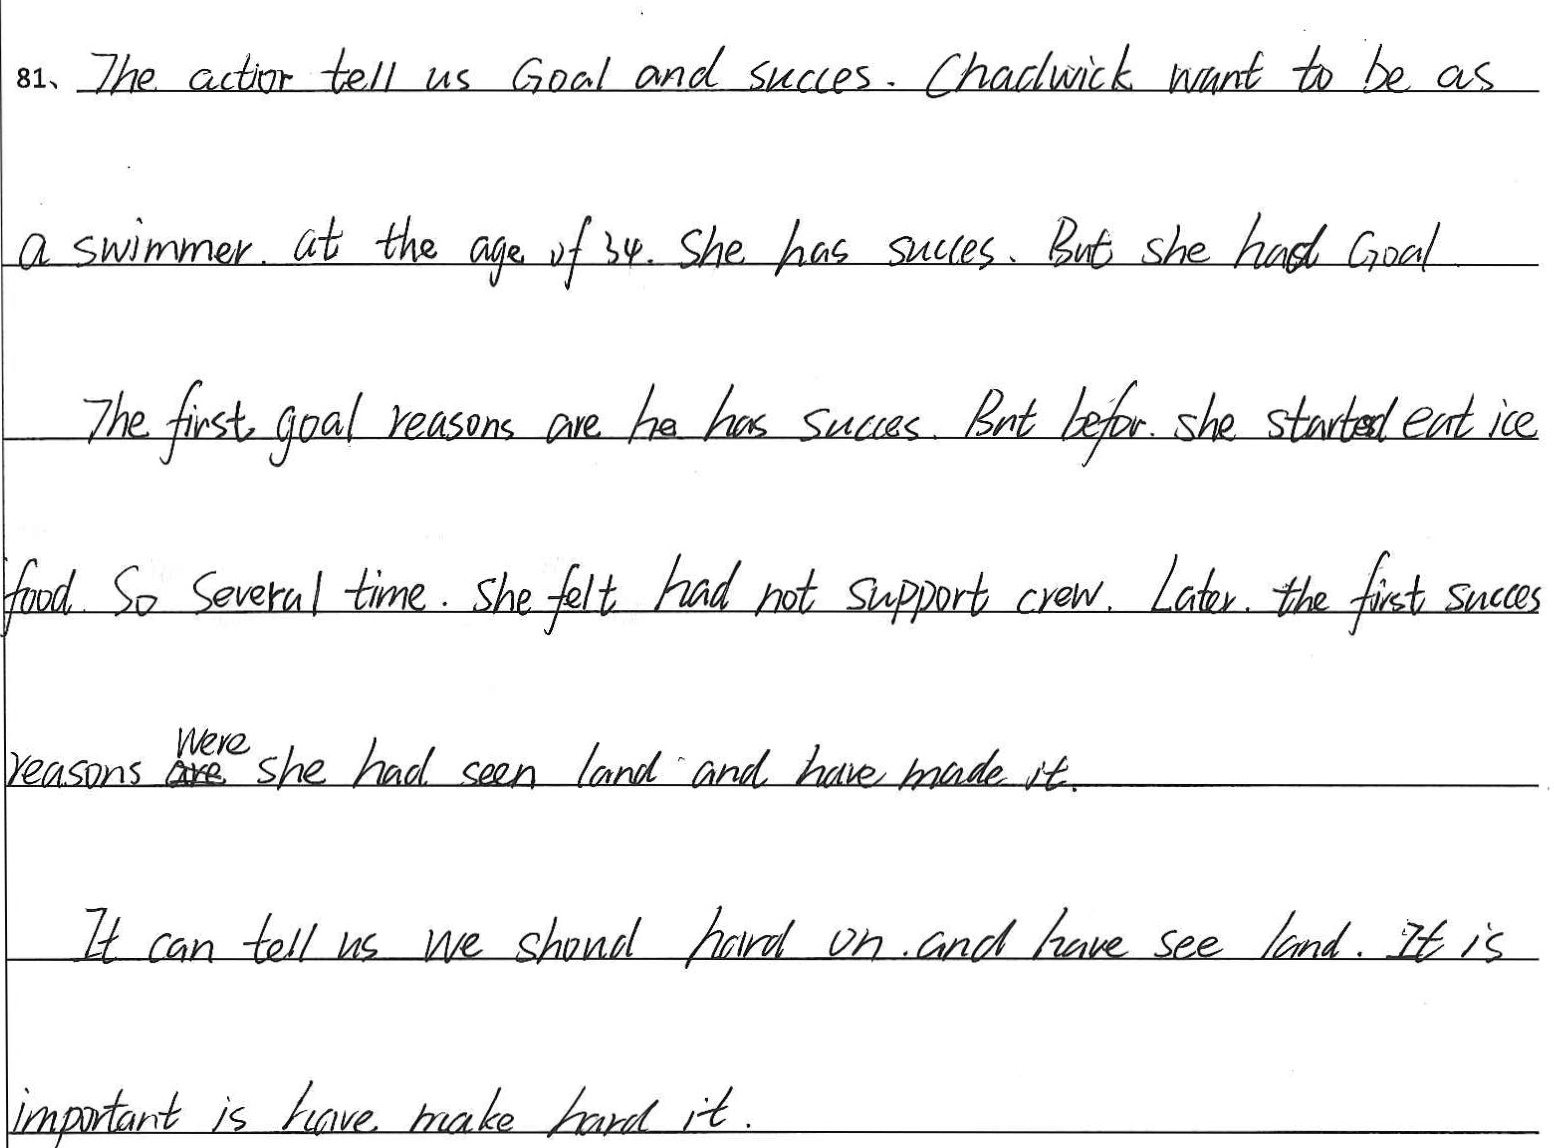 81、The actior tell us Goal and succes. Chadwick want to be as
a swimmer. at the age of 34. She has succes. But she had Goal
The first goal reasons are he has succes. But befor. she started eat ice
food. So Several time. she felt had not support crew. Later. the first succes
reasons were she had seen land and have made it.
It can tell us we shoud hard on. and have see land. It is
important is have make hard it.